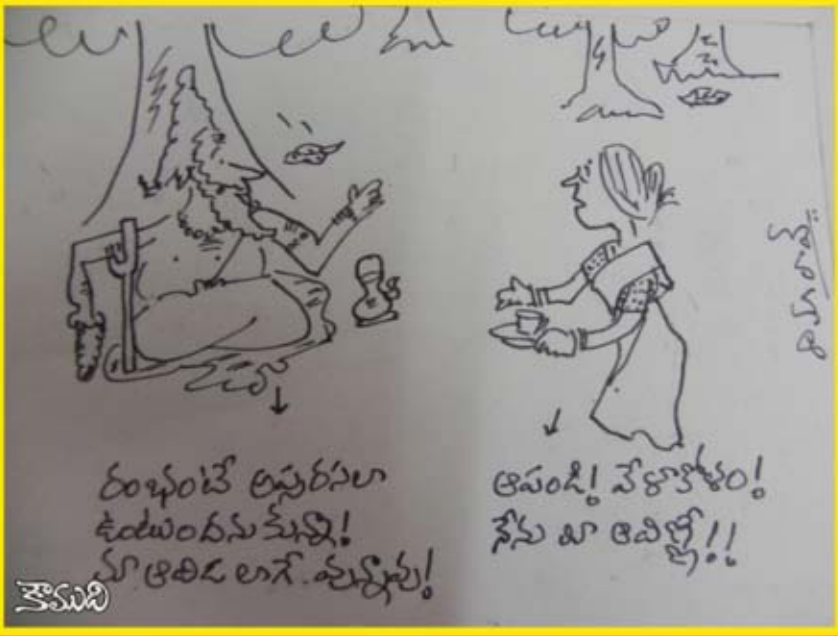 రంభంటే అప్సరసలా
ఉంటుందనుకున్నా!
మా ఆవిడ లాగే వున్నావు!
ఆపండి! వేళాకోళం!
నేను మీ ఆవిణ్ణే!!
కౌముది